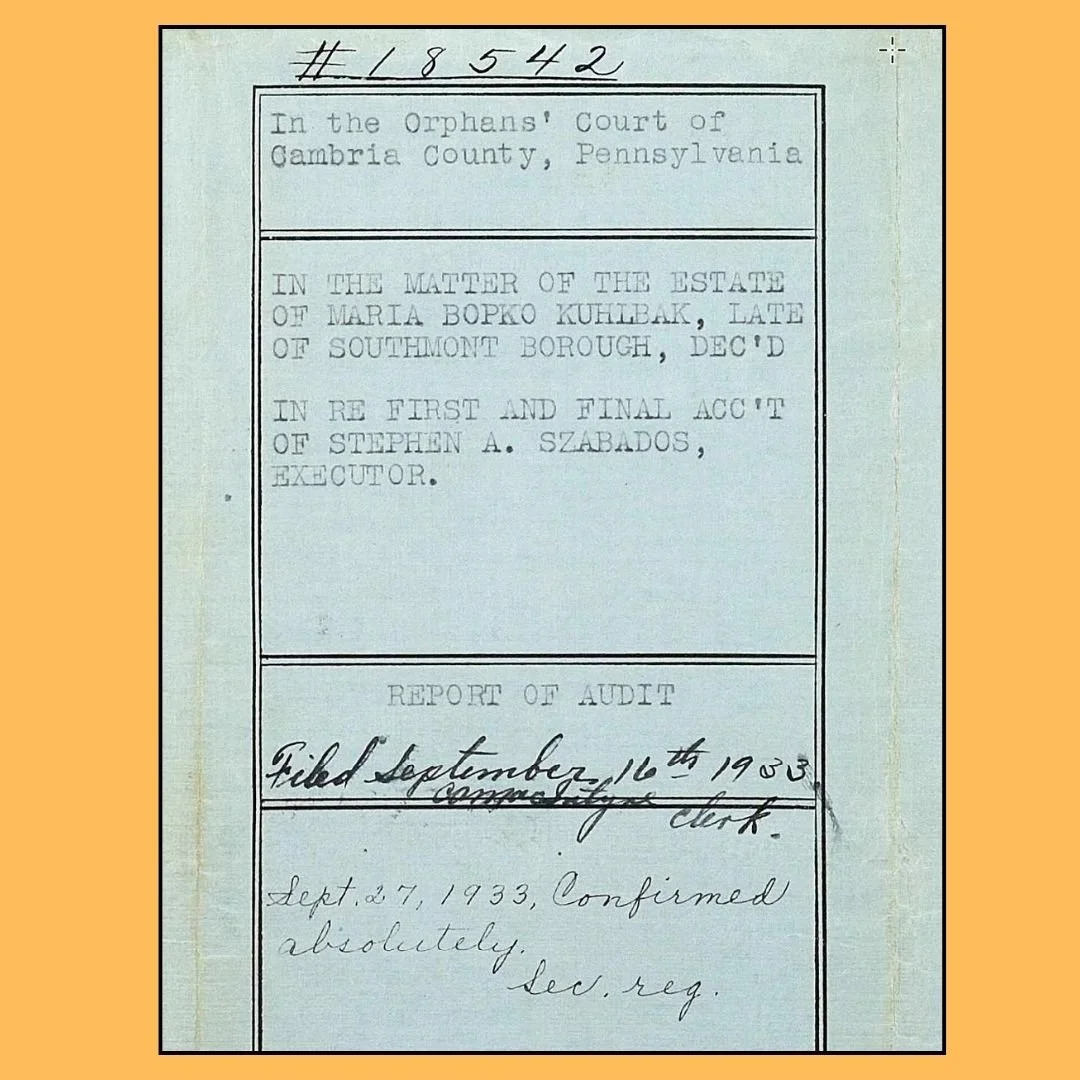 #18542
In the Orphans' Court of
Cambria County, Pennsylvania
IN THE MATTER OF THE ESTATE
OF MARIA BOPKO KUHLBAK, LATE
OF SOUTHMONT BOROUGH, DEC'D
IN RE FIRST AND FINAL ACC'T
OF STEPHEN A. SZABADOS,
EXECUTOR.
REPORT OF AUDIT
Filed September 16th 1933.
clerk.
Sept. 27, 1933, Confirmed
absolutely.
Sec. reg.